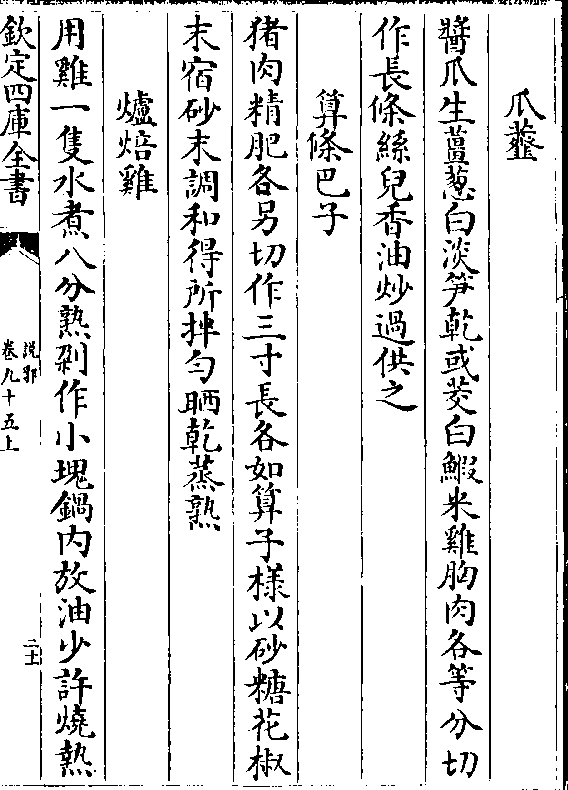 瓜虀
醬瓜生薑葱白淡笋乾或茭白鰕米雞胸肉各等分切
作長條絲兒香油炒過供之
算條巴子
猪肉精肥各另切作三寸長各如算子樣以砂糖花椒
末宿砂末調和得所拌勻晒乾蒸熟
爐焙雞
用雞一隻水煮八分熟剁作小塊鍋内放油少許燒熟
欽定四庫全書
說郛
卷九十五上